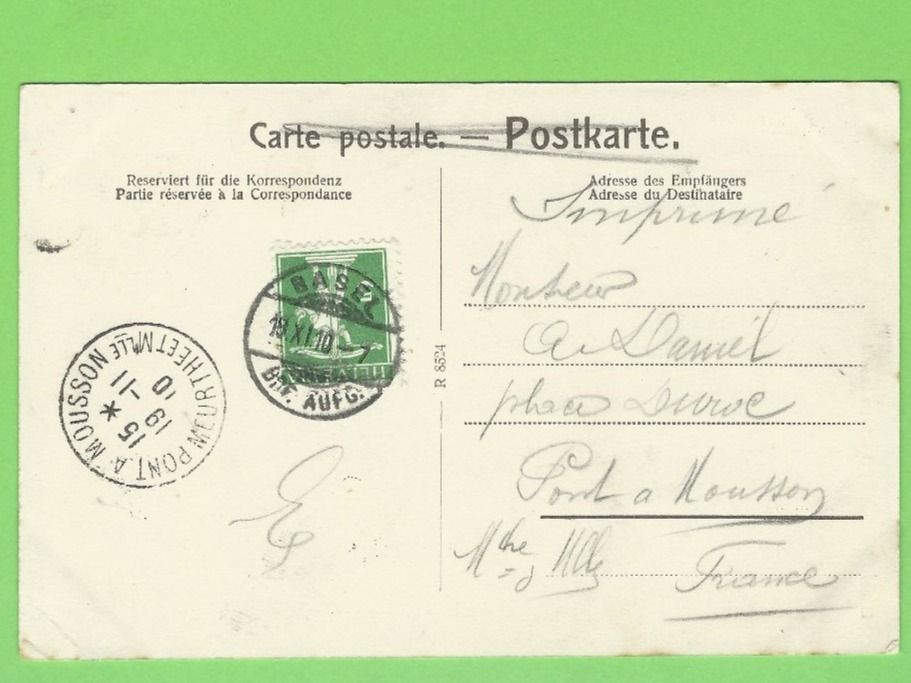 Carte postale. — Postkarte.
Reserviert für die Korrespondenz
Partie réservée à la Correspondance
Adresse des Empfängers
Adresse du Destinataire
Imprimé
Monsieur
A. Daniel
place Duroc
Pont a Mousson
Mthe Mlle
France
R 8524
BASEL
18.XI.10.-7
BRF. AUFG.
PONT A MOUSSON
MEURTHE ET MLLE
15 *
19 -11
10
E